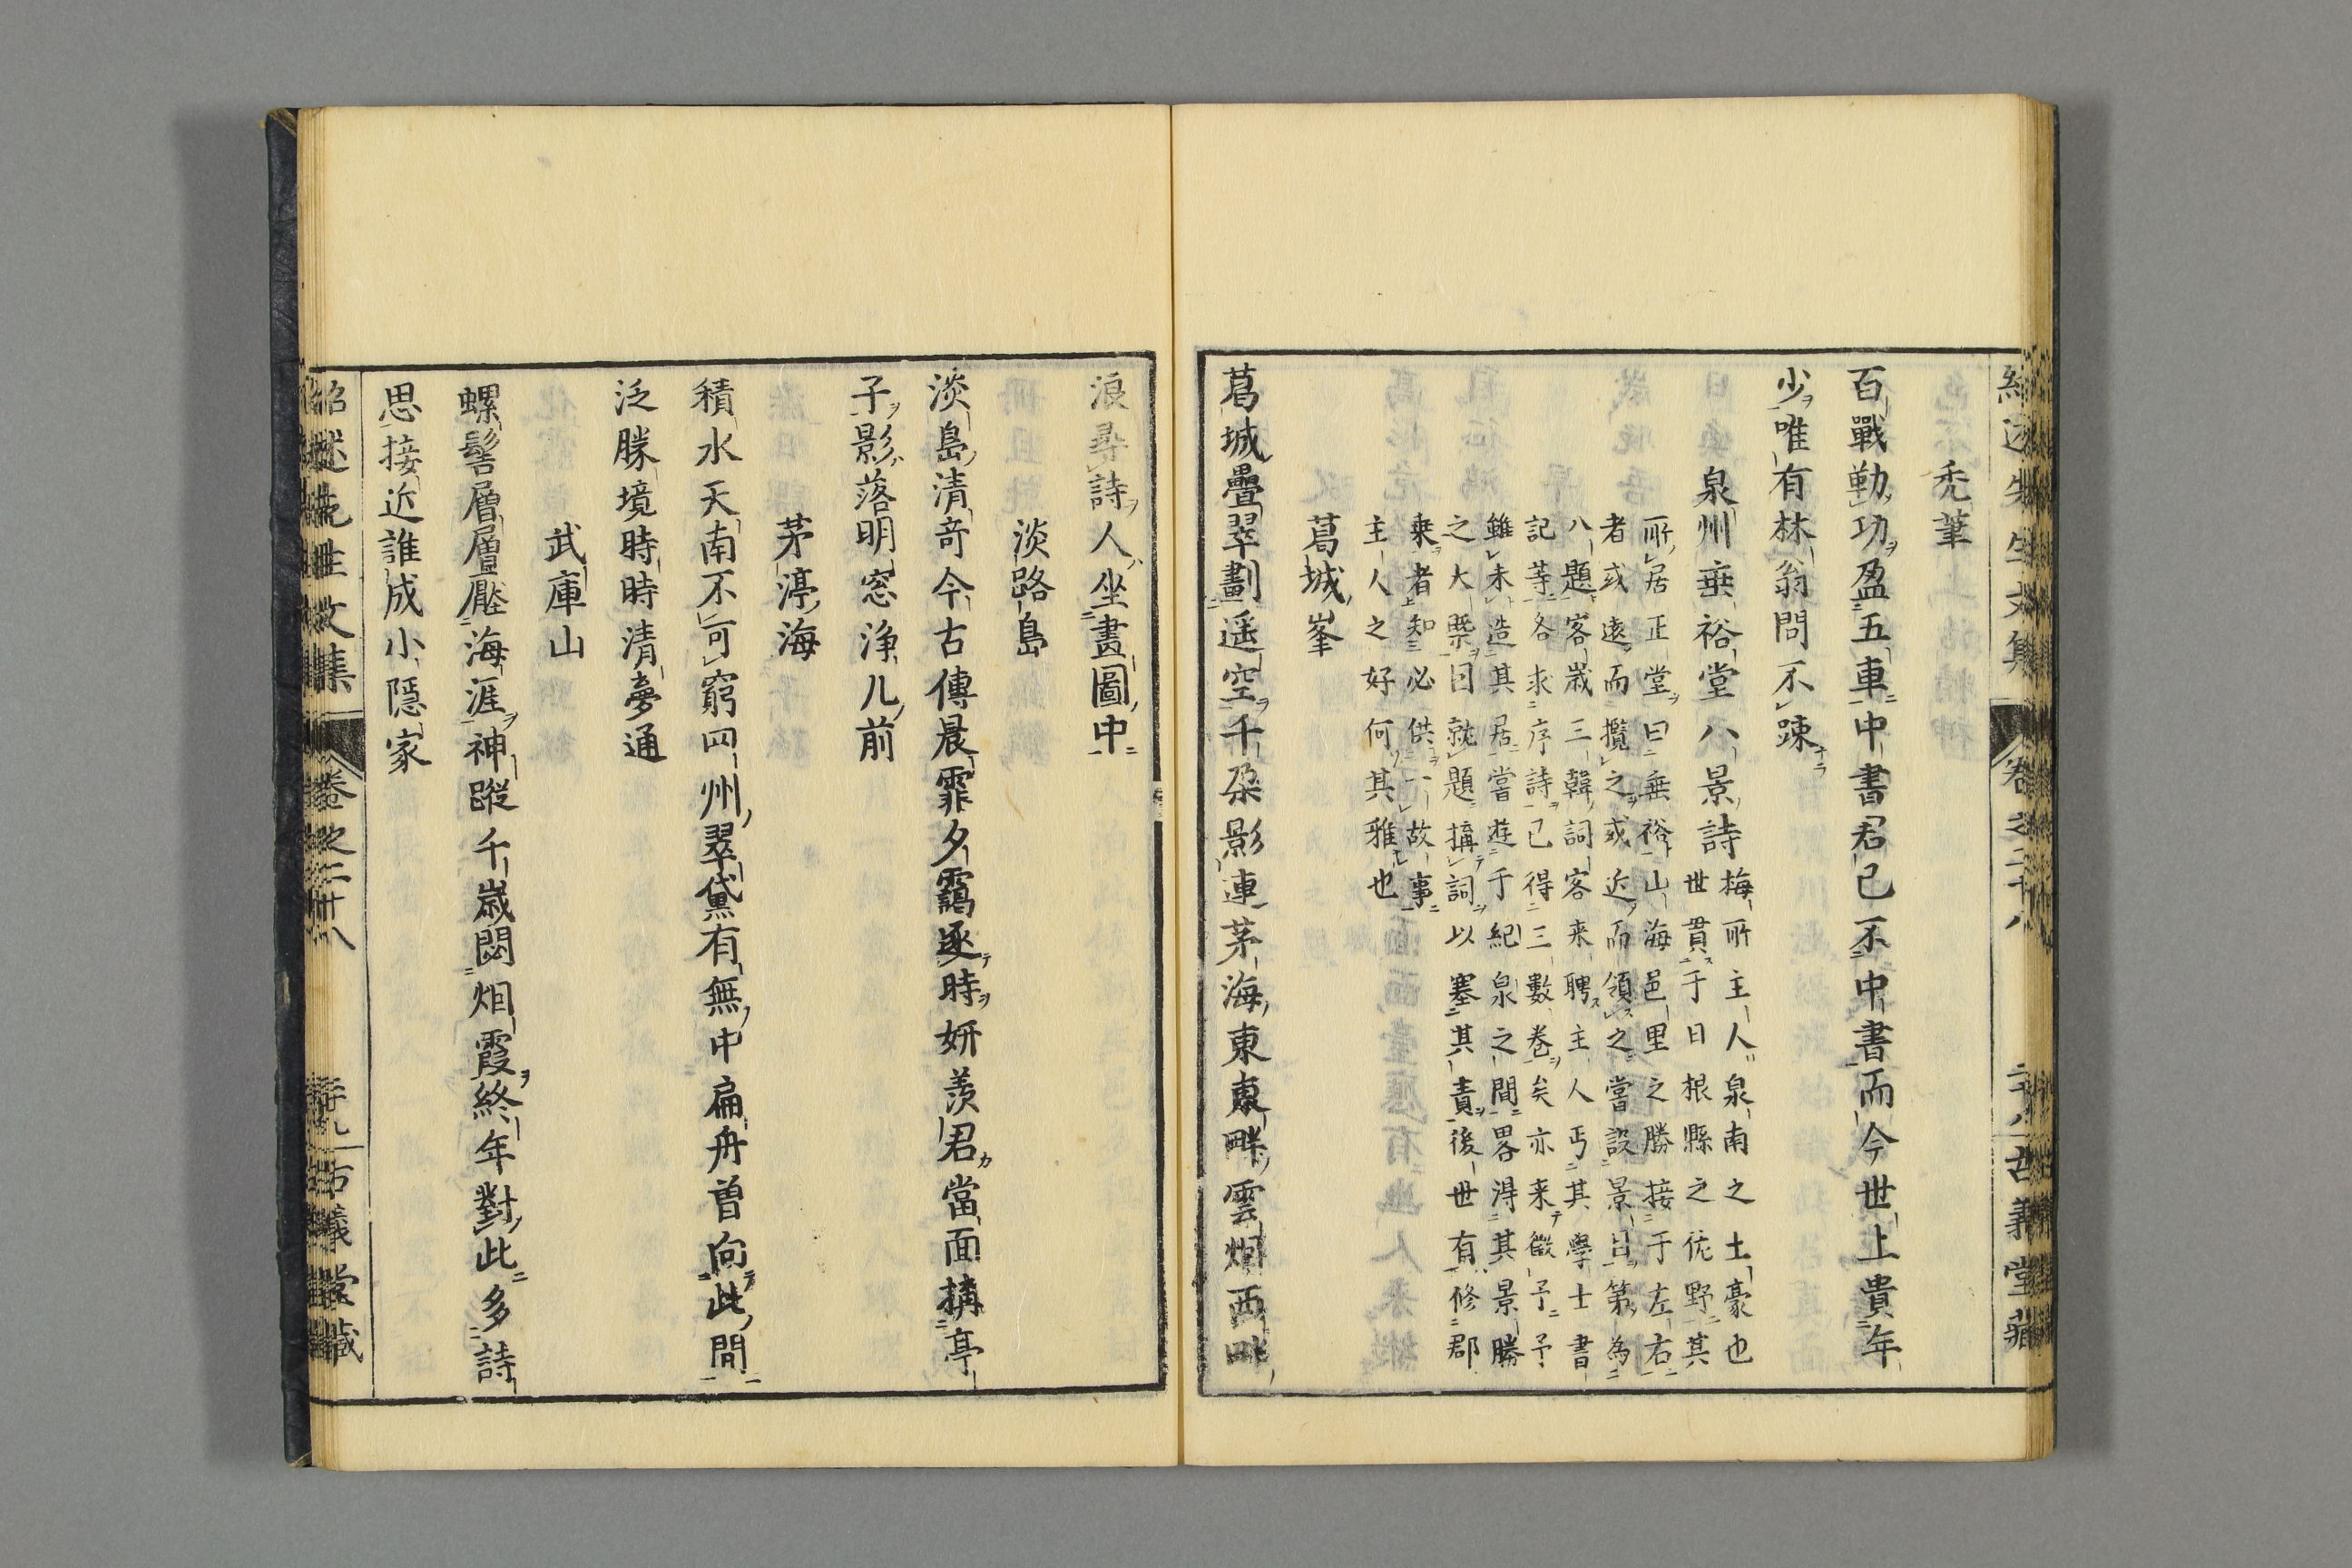 紹述先生文集 卷之二十八 二十八 古義堂藏
禿筆
百戰勒功盈五車中書君已不中書而今世上貴年
少唯有林翁問不踈
泉州垂裕堂八景詩
梅所主人泉南之土豪也
世貫于日根縣之佐野其
所居正堂曰垂裕山海邑里之勝接于左右
者或遠而攬之或近而領之嘗設景目第為
八題客歳三韓詞客来聘主人丐其學士書
記等各求序詩已得三數卷矣亦来徵予予
雖未造其居嘗遊于紀泉之間畧淂其景勝
之大槩因就題搆詞以塞其責後世有修郡
乗者知必供一故事
主人之好何其雅也
葛城峯
葛城疊翠劃遥空千朶影連茅海東東畔雲烟西畔
浪尋詩人坐畫圖中
淡路島
淡島清竒今古傳晨霏夕靄逐時妍羨君當面搆亭
子影落明窓浄几前
茅渟海
積水天南不可窮四州翠黛有無中扁舟曽向此間
泛勝境時時清夢通
武庫山
螺髻層層壓海涯神蹤千歳閟烟霞終年對此多詩
思接近誰成小隠家
紹述先生文集 卷之二十八 二十九 古義堂藏